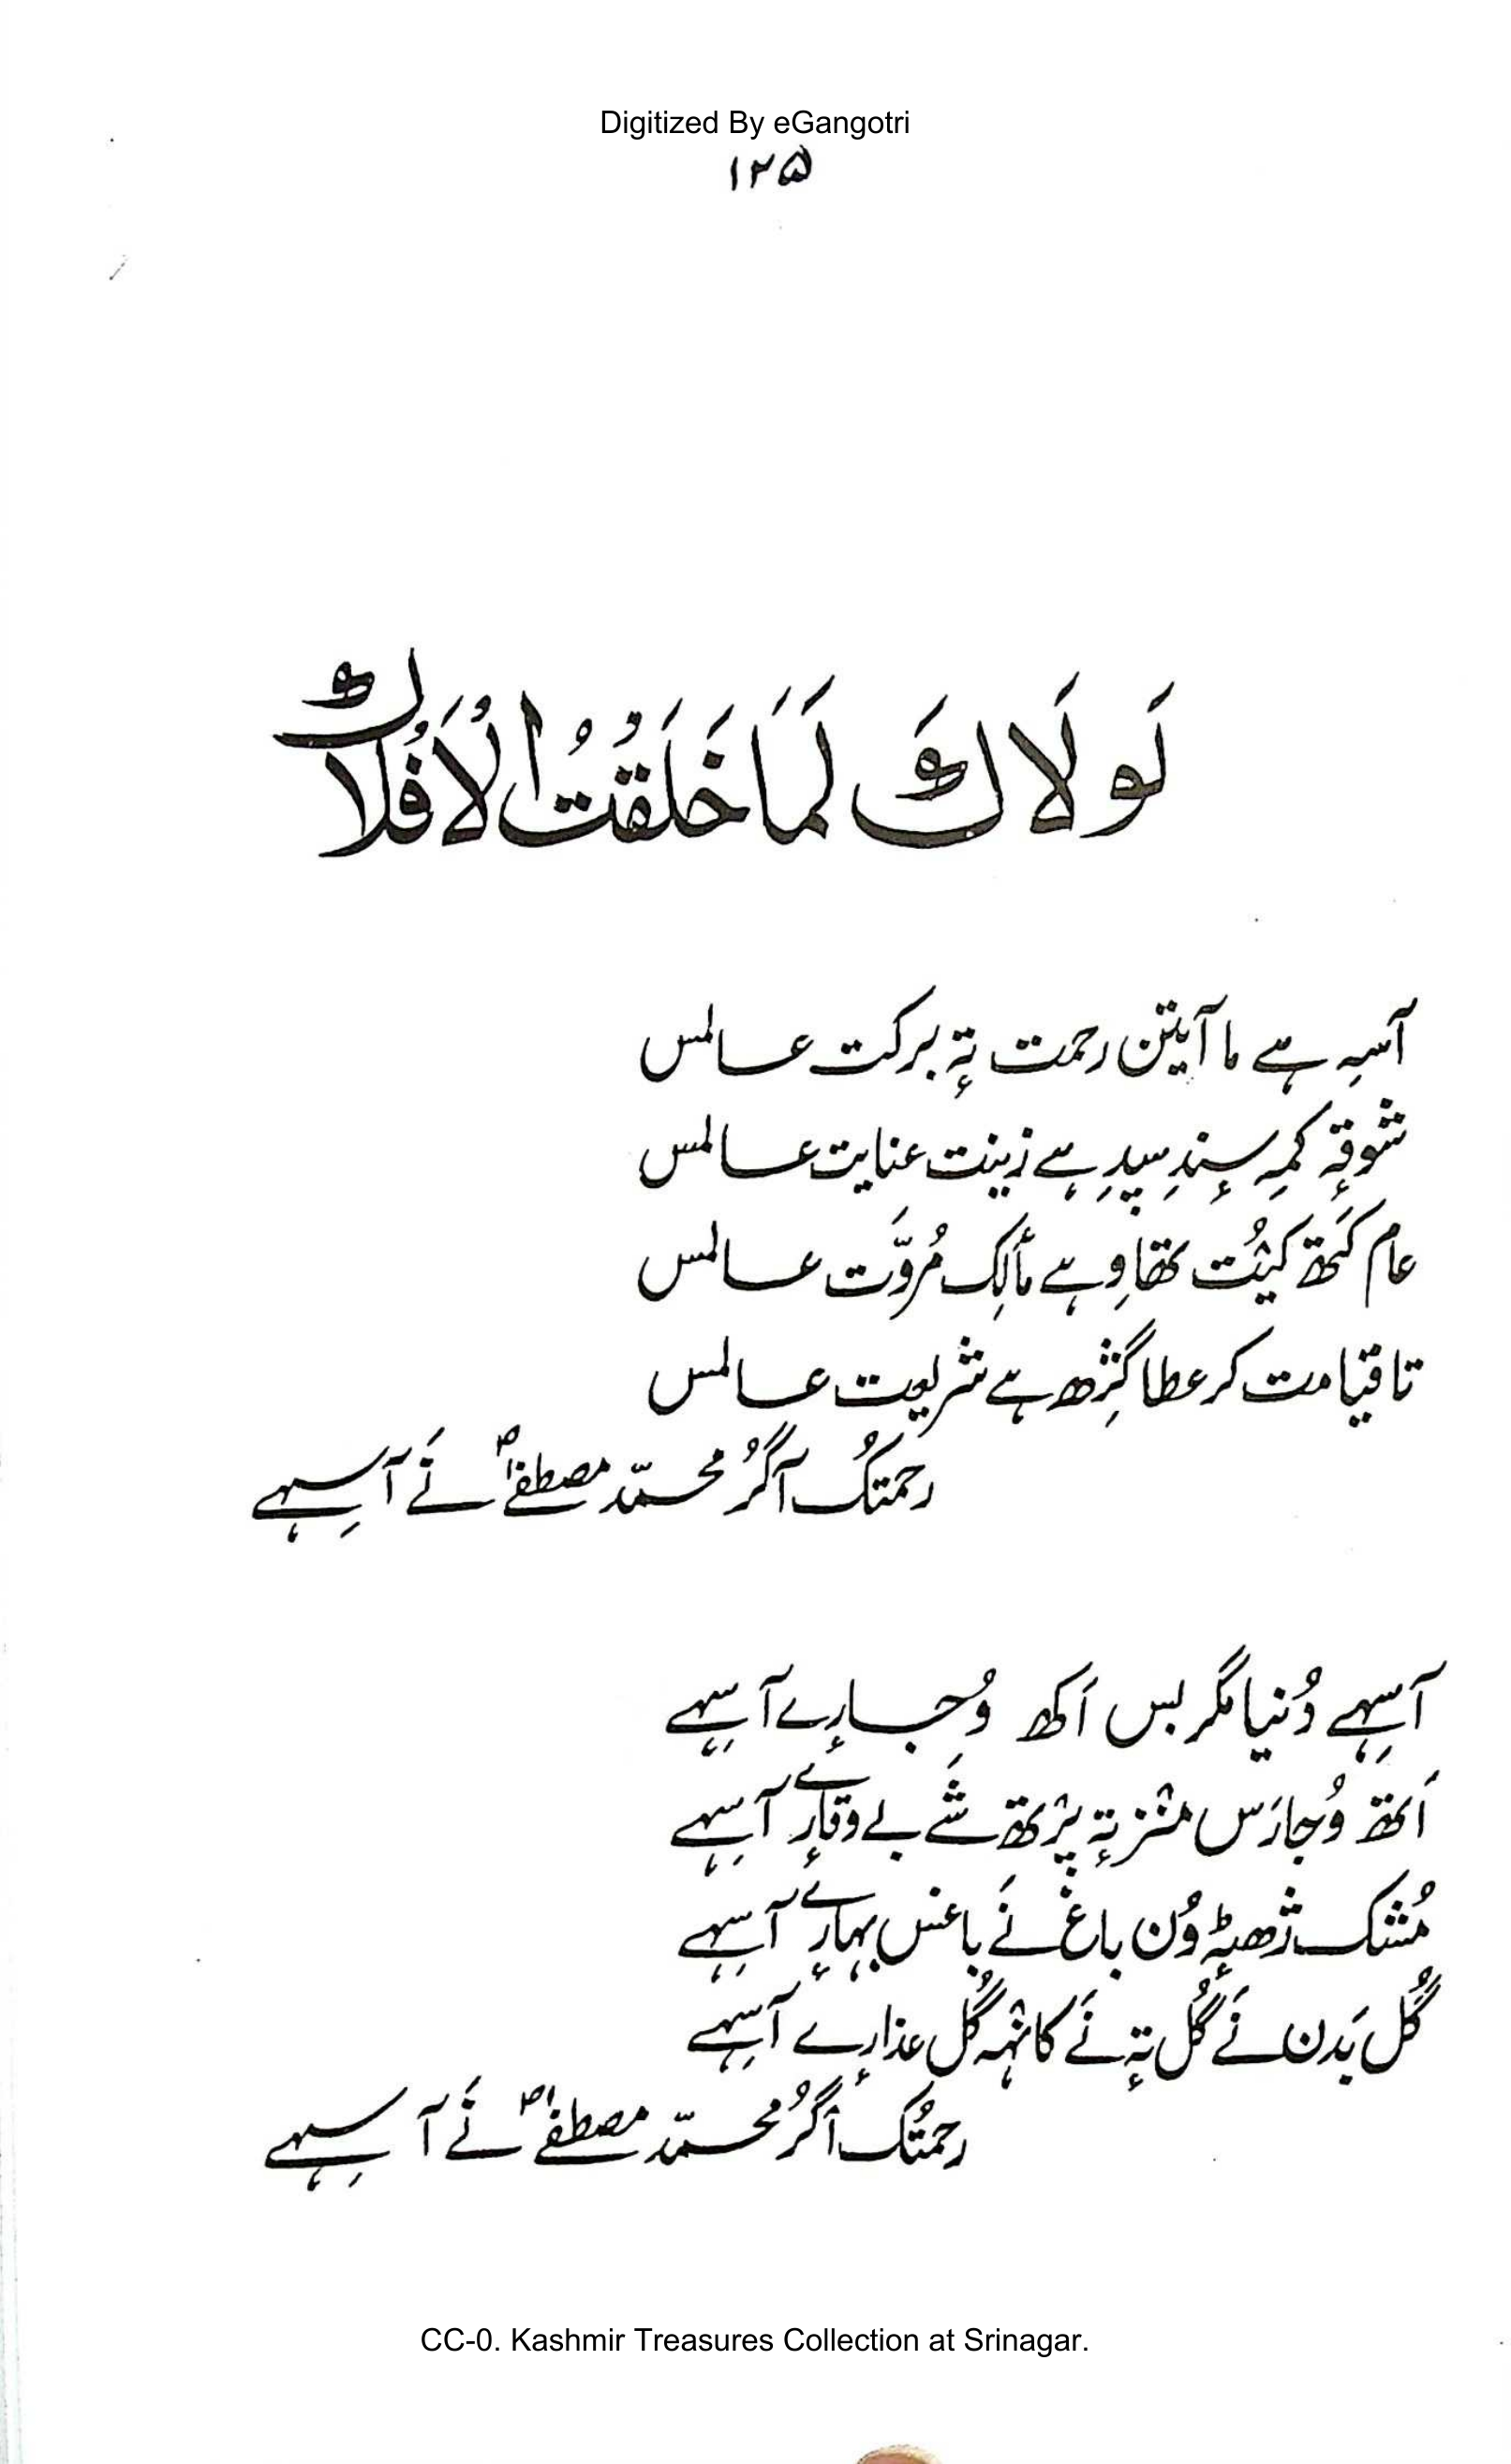 Digitized By eGangotri
۱۲۵
لَولَاكَ لَمَا خَلَقْتُ الْاَفْلَاكْ
آسہِ ہے ما آیتن رحمت تہٕ برکت عالمس
شوقہٕ کمہِ سٕندِ سپدِ ہے زینت عنایت عالمس
عام کَتھ کیُٛت تھاوِ ہے مٲلِک مُروَّت عالمس
تا قیامت کر عطا گژِھ ہے شریعت عالمس
رحمتُک آگُر محمّد مصطفےٰؐ نَے آسہِے
آسہِے دُنیا مگر بس اَکھ وُجارٕے آسہِے
اَتھ وُجارَس منز تہٕ پرٛتھ شَے بے وقارٕے آسہِے
مُشک ژھٹہٕ وُن باغ نَے باغس بہارٕے آسہِے
گُل بَدن نَے گُل تہٕ نَے کانٛہہ گُل عذارٕے آسہِے
رحمتُک آگُر محمّد مصطفےٰؐ نَے آسہِے
CC-0. Kashmir Treasures Collection at Srinagar.